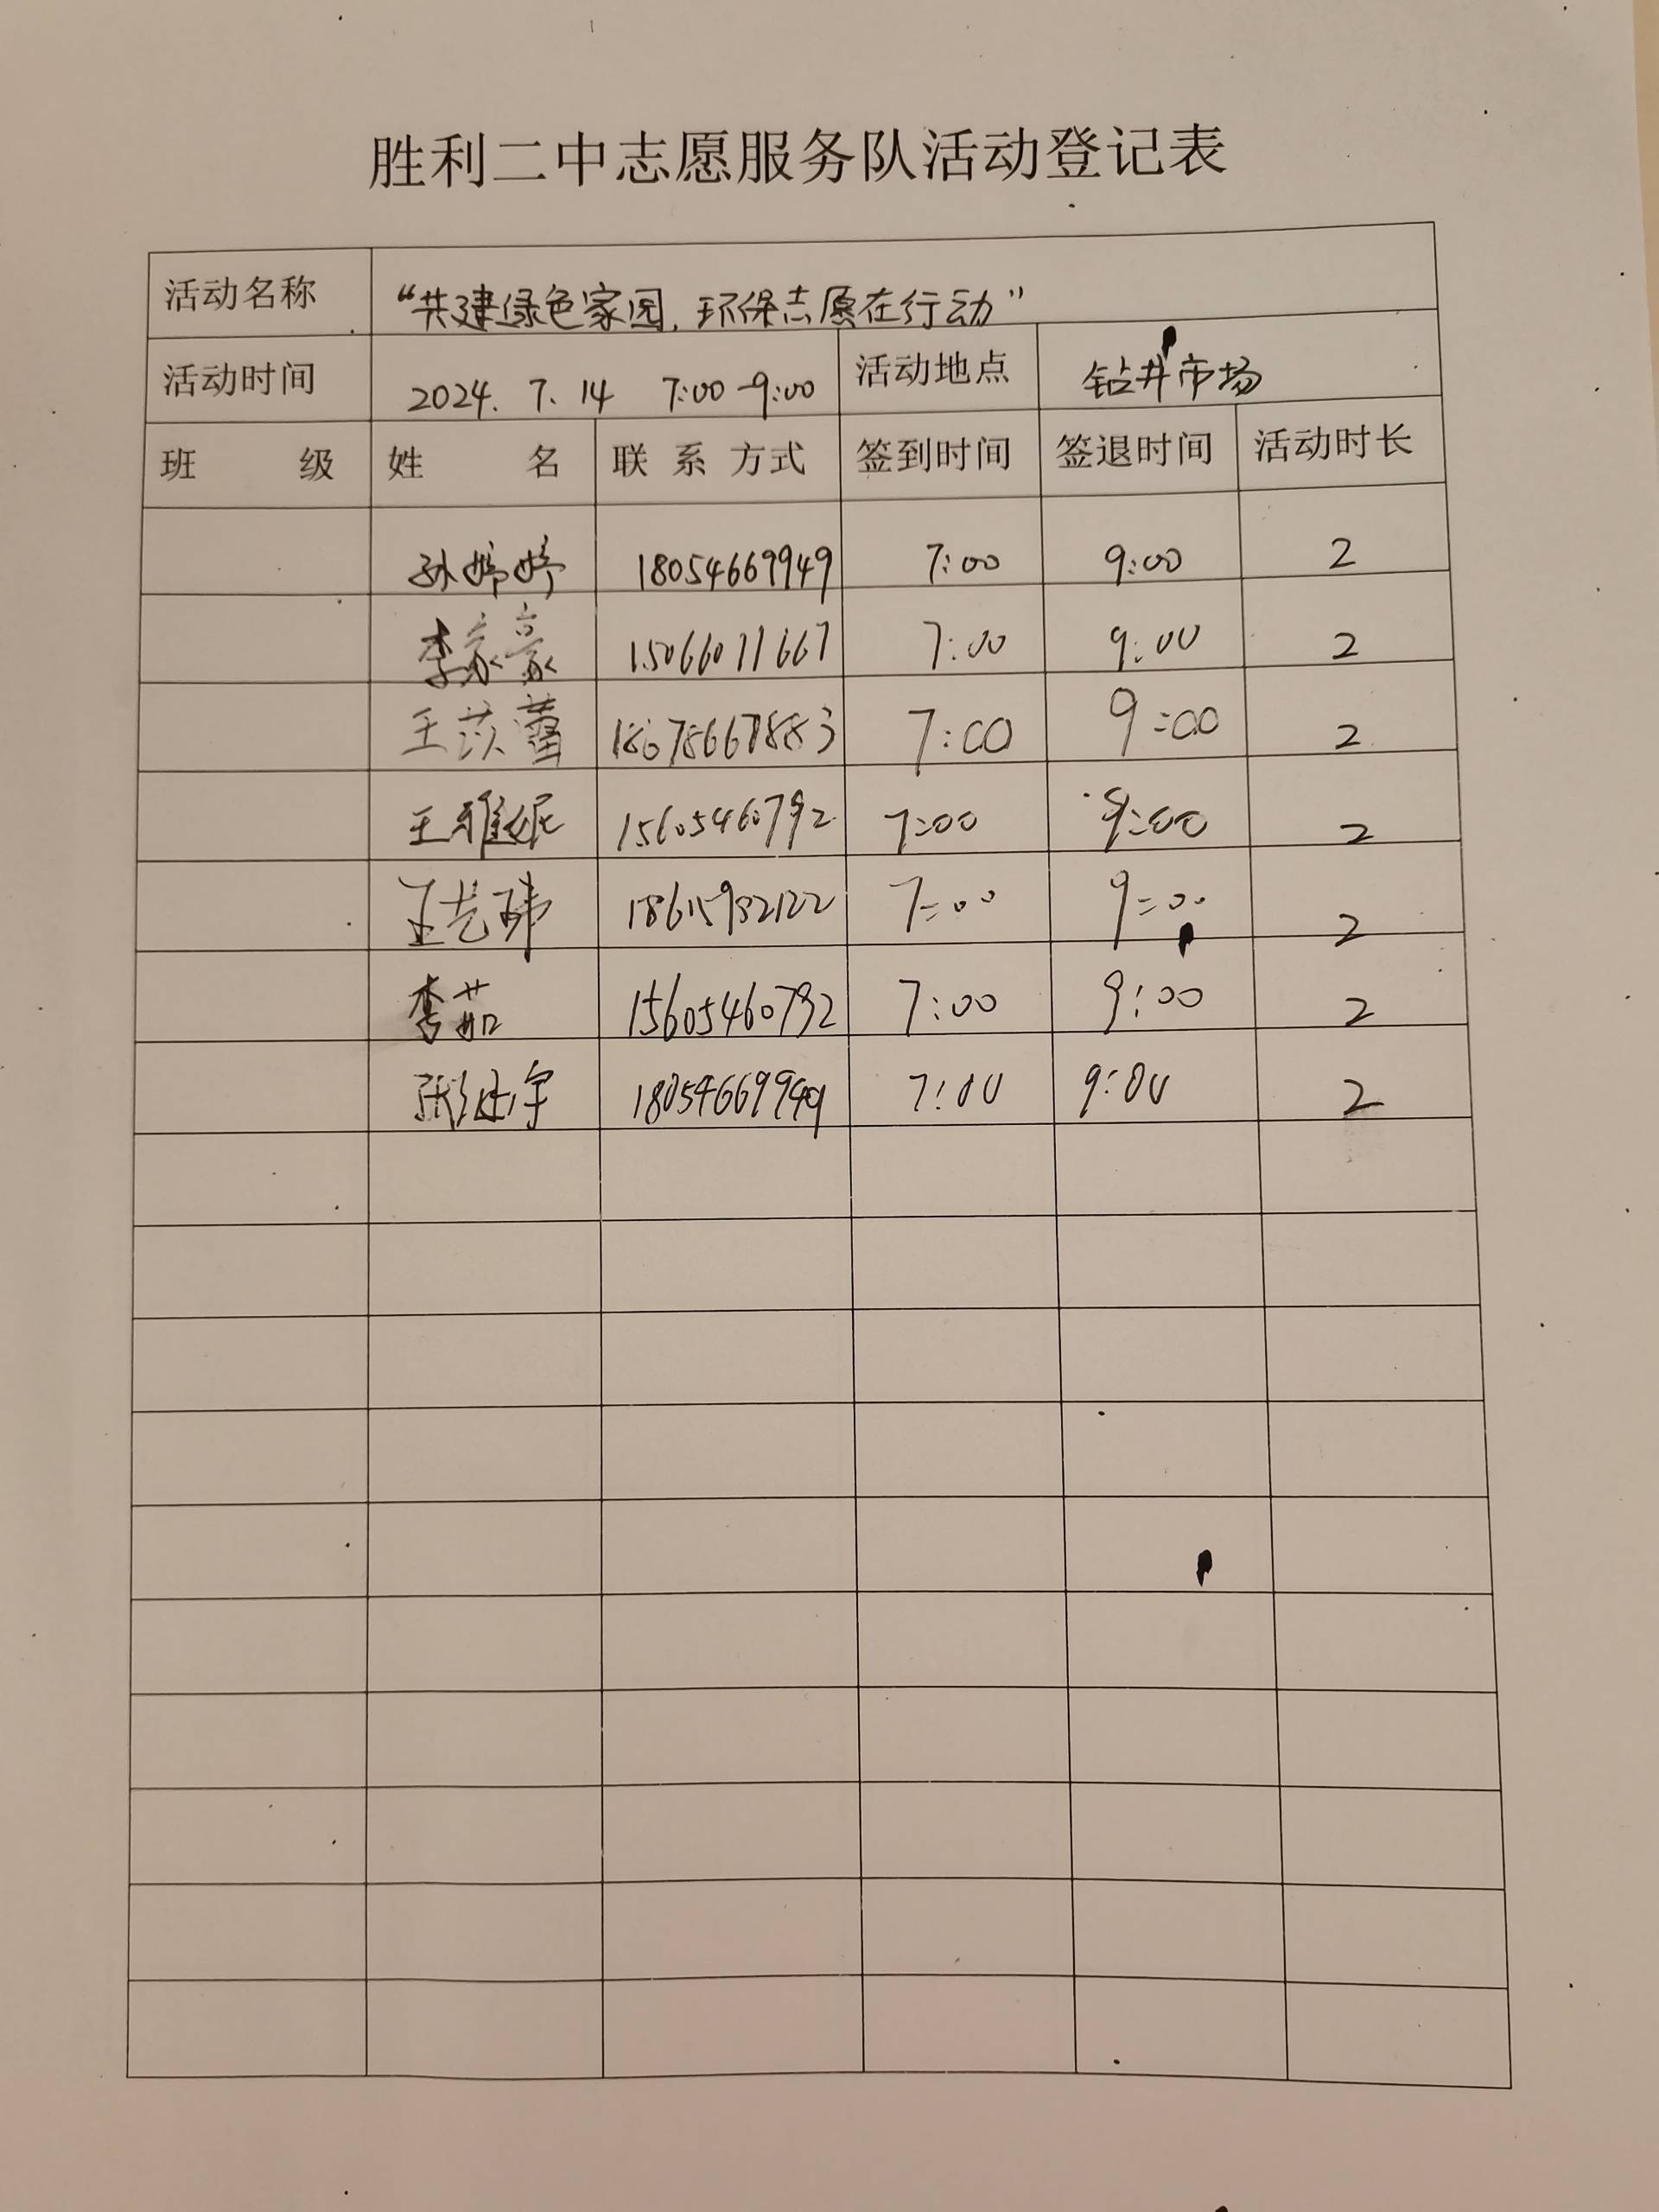 胜利二中志愿服务队活动登记表
活动名称 “共建绿色家园，环保志愿在行动”
活动时间 2024.7.14 7:00-9:00 活动地点 钻井市场
班 级 姓 名 联系方式 签到时间 签退时间 活动时长
孙婷婷 18054669949 7:00 9:00 2
李家豪 15066071667 7:00 9:00 2
王苡蕾 18678667883 7:00 9:00 2
王雅妮 15605460792 7:00 9:00 2
王艺玮 18615982122 7:00 9:00 2
李茹 15605460792 7:00 9:00 2
18054669949 7:00 9:00 2